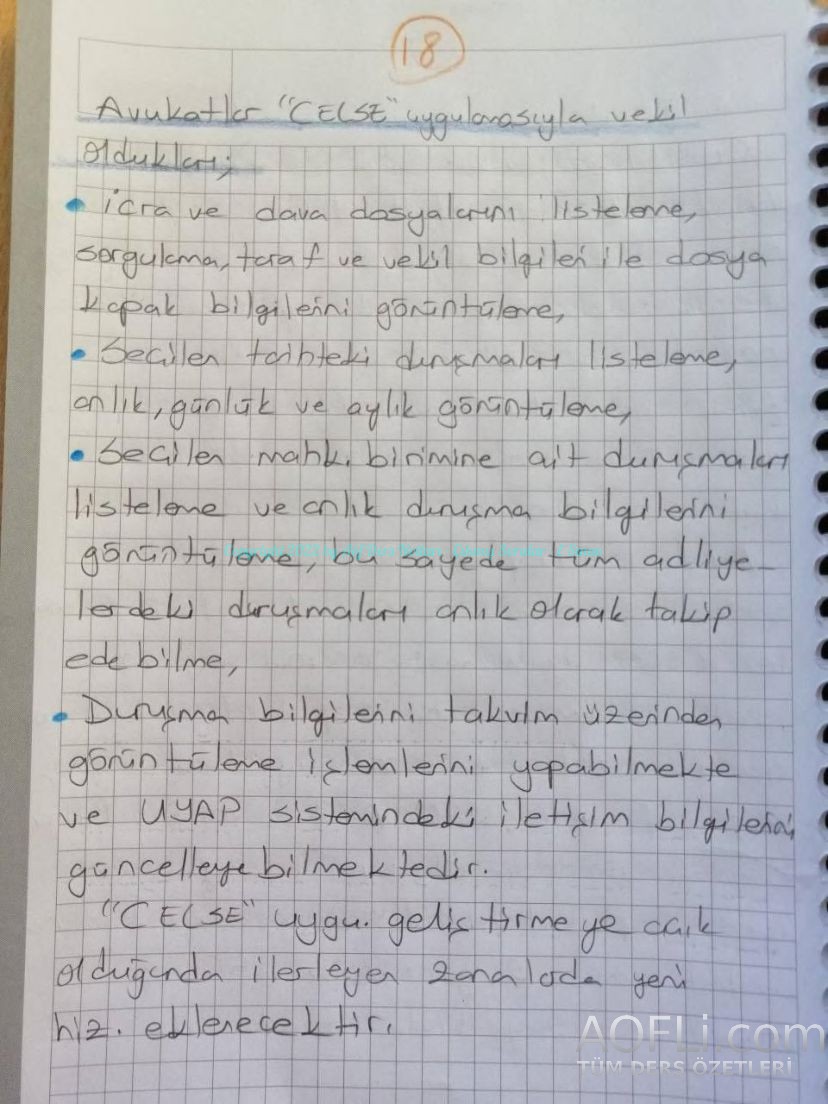 18
Avukatlar "CELSE" uygulamasıyla vekil
oldukları;
• icra ve dava dosyalarını listeleme,
sorgulama, taraf ve vekil bilgileri ile dosya
kapak bilgilerini görüntüleme,
• Seçilen tarihteki duruşmaları listeleme,
anlık, günlük ve aylık görüntüleme,
• Seçilen mahk. birimine ait duruşmaları
listeleme ve anlık duruşma bilgilerini
görüntüleme, bu sayede tüm adliye-
lerdeki duruşmaları anlık olarak takip
edebilme,
• Duruşma bilgilerini takvim üzerinden
görüntüleme işlemlerini yapabilmekte
ve UYAP sistemindeki iletişim bilgilerini
güncelleyebilmektedir.
"CELSE" uygu. geliştirmeye açık
olduğundan ilerleyen zamanlarda yeni
hiz. eklenecektir.
AOFLi.com
TÜM DERS ÖZETLERİ